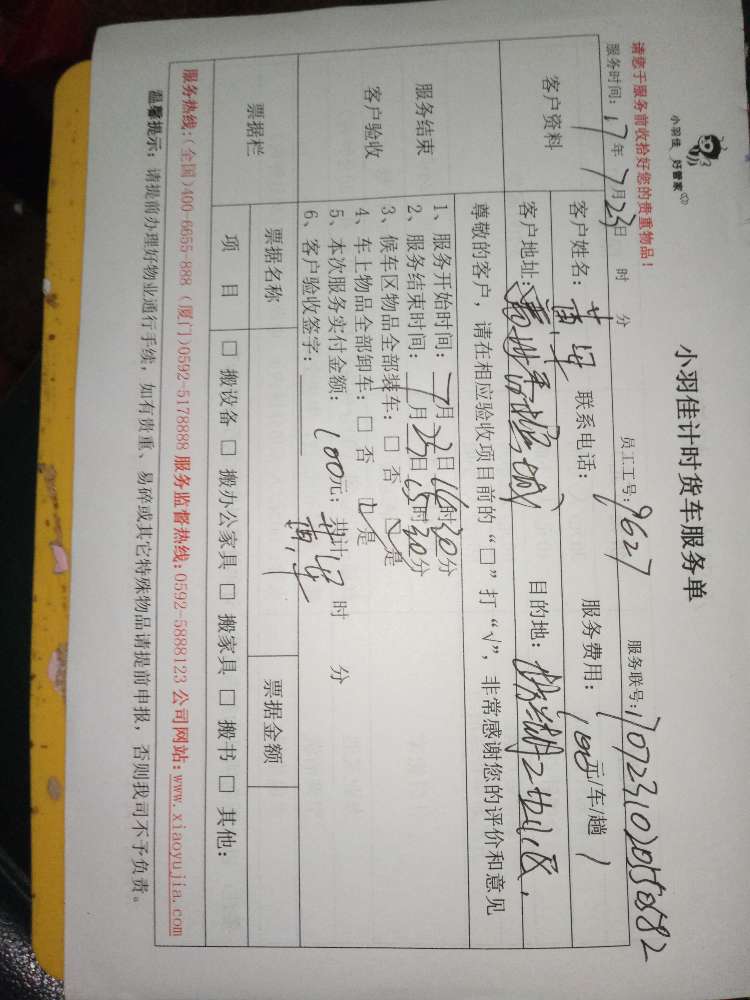 小羽佳 好管家
小羽佳计时货车服务单
请您于服务前收拾好您的贵重物品！
服务时间：17年7月23日 时 分 员工工号：9627 服务联号：
客户资料
客户姓名： 联系电话： 服务费用：100元/车/趟
客户地址： 目的地：
尊敬的客户，请在相应验收项目前的“□”打“√”，非常感谢您的评价和意见
服务结束
客户验收
1、服务开始时间：7月 日 时30分
2、服务结束时间： 月23日 时30分
3、候车区物品全部装车：□ 否 ☑ 是
4、车上物品全部卸车：□ 否 ☑ 是
5、本次服务实付金额：100元；共计 时 分
6、客户验收签字：
票据栏
票据名称 票据金额
项 目 □ 搬设备 □ 搬办公家具 □ 搬家具 □ 搬书 □ 其他：
服务热线:(全国)400-6655-888 (厦门)0592-5178888 服务监督热线:0592-5888123 公司网站:www.xiaoyujia.com
温馨提示：请提前办理好物业通行手续，如有贵重、易碎或其它特殊物品请提前申报，否则我司不予负责。